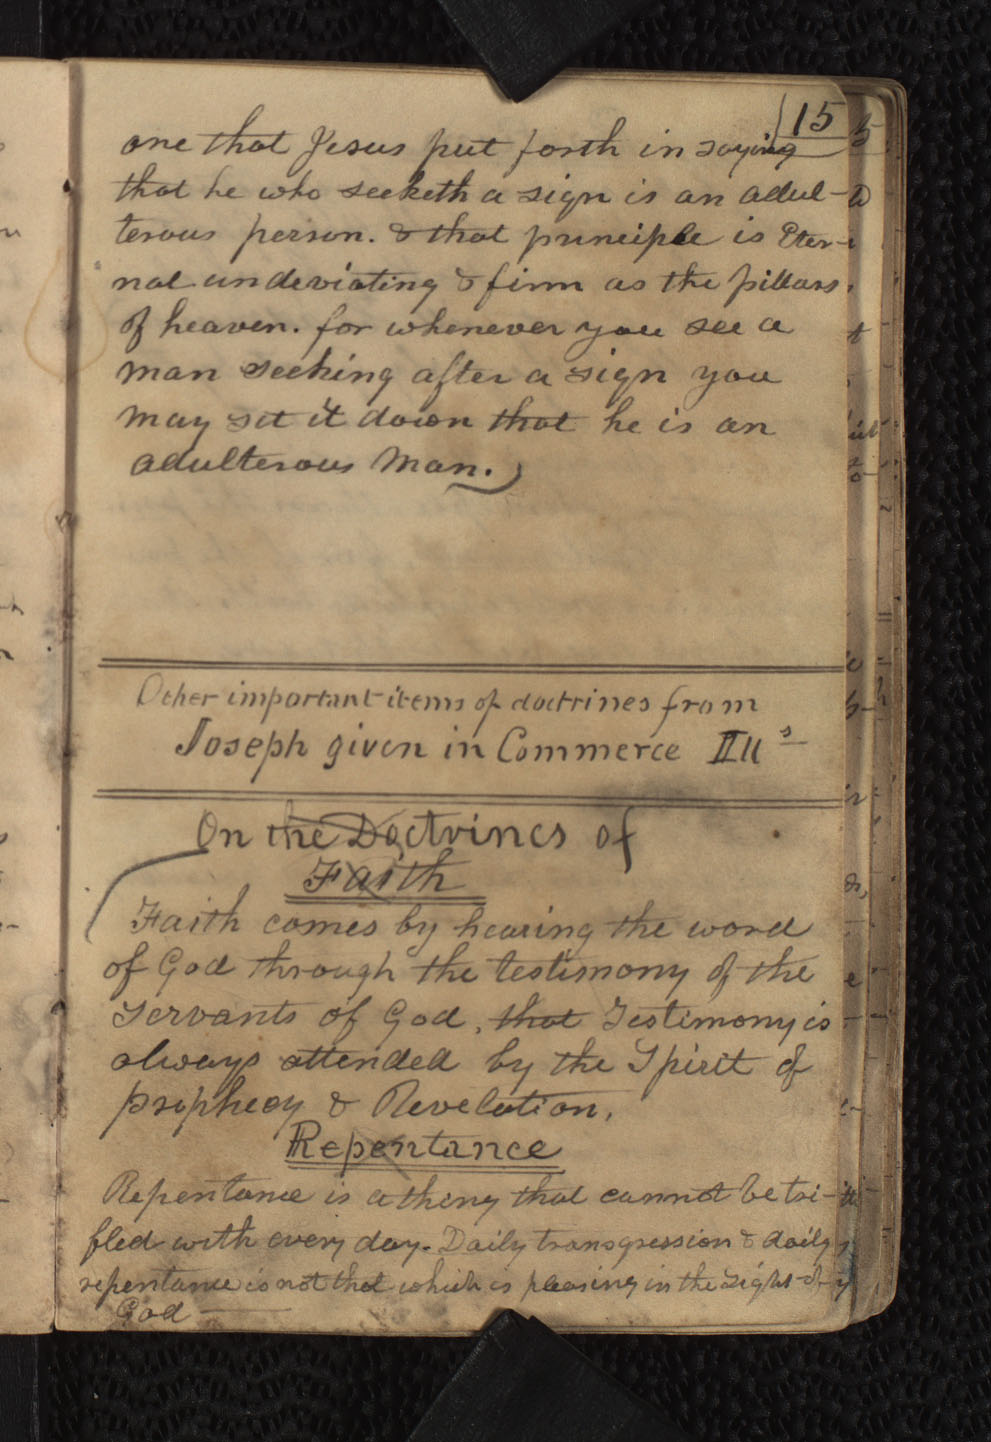 15
one that Jesus put forth in saying
that he who seeketh a sign is an adul-
terous person. & that principle is Eter-
nal undeviating & firm as the pillars
of heaven. for whenever you see a
man seeking after a sign you
may set it down that he is an
adulterous man.
Other important items of doctrines from
Joseph given in Commerce Ills
On the Doctrines of
Faith
Faith comes by hearing the word
of God through the testimony of the
Servants of God, that Testimony is
always attended by the Spirit of
prophecy & Revelation.
Repentance
Repentance is a thing that cannot be tri-
fled with every day. Daily transgression & daily
repentance is not that which is pleasing in the sight of
God